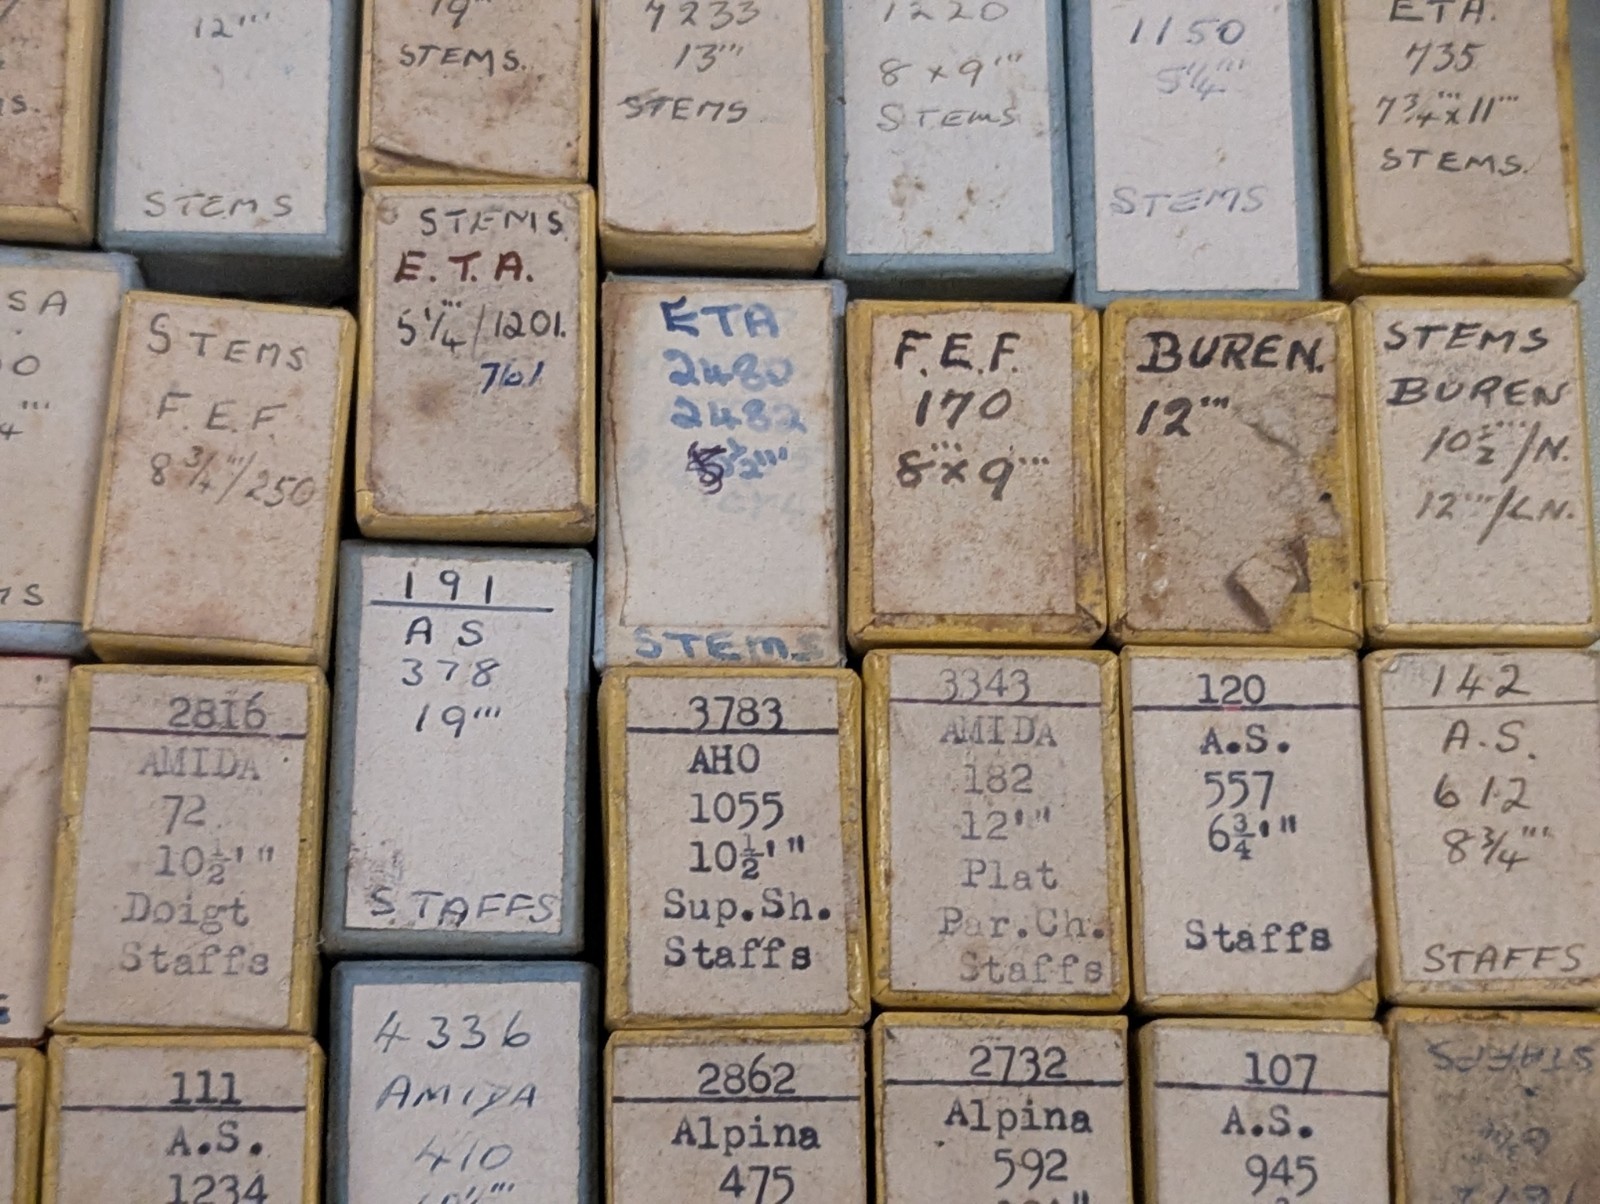 12'''
STEMS
19'''
STEMS.
7233
13'''
STEMS
1220
8 x 9'''
STEMS
1150
5¼'''
STEMS
ETA.
735
7¾''' x 11'''
STEMS.
SA
STEMS
F.E.F
8¾'''/250
STEMS.
E.T.A.
5¼'''/1201.
761
ETA
2480
2482
STEMS
F.E.F.
170
8''' x 9'''
BUREN.
12'''
STEMS
BUREN
10½'''/N.
12'''/LN.
2816
AMIDA
72
10½'"
Doigt
Staffs
191
AS
378
19'''
STAFFS
3783
AHO
1055
10½'"
Sup.Sh.
Staffs
3343
AMIDA
182
12'"
Plat
Par.Ch.
Staffs
120
A.S.
557
6¾'"
Staffs
142
A.S.
612
8¾'''
STAFFS
111
A.S.
1234
4336
AMIDA
410
2862
Alpina
475
2732
Alpina
592
107
A.S.
945
STAFFS